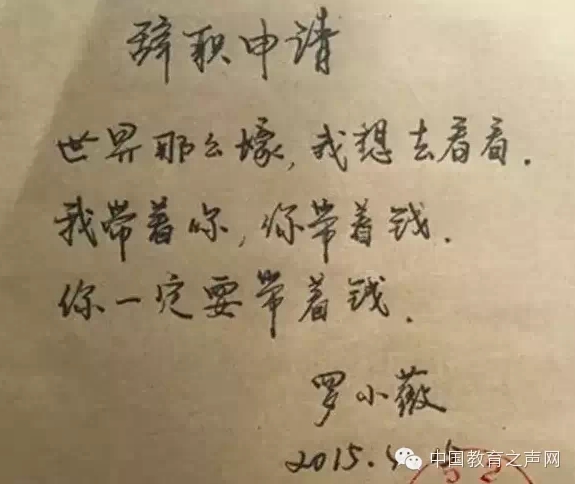 辞职申请
世界那么壕,我想去看看.
我带着你,你带着钱.
你一定要带着钱.
罗小薇
2015.
中国教育之声网